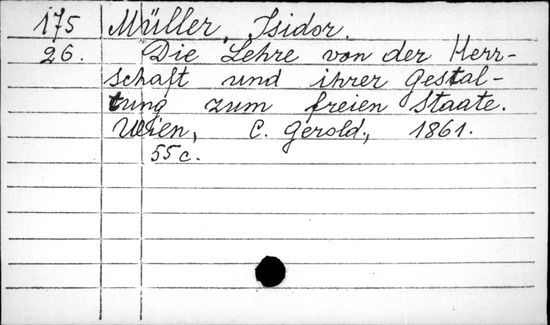 175 Müller, Isidor.
26. Die Lehre von der Herr-
schaft und ihrer Gestal-
tung zum freien Staate.
Wien, C. Gerold, 1861.
55 c.